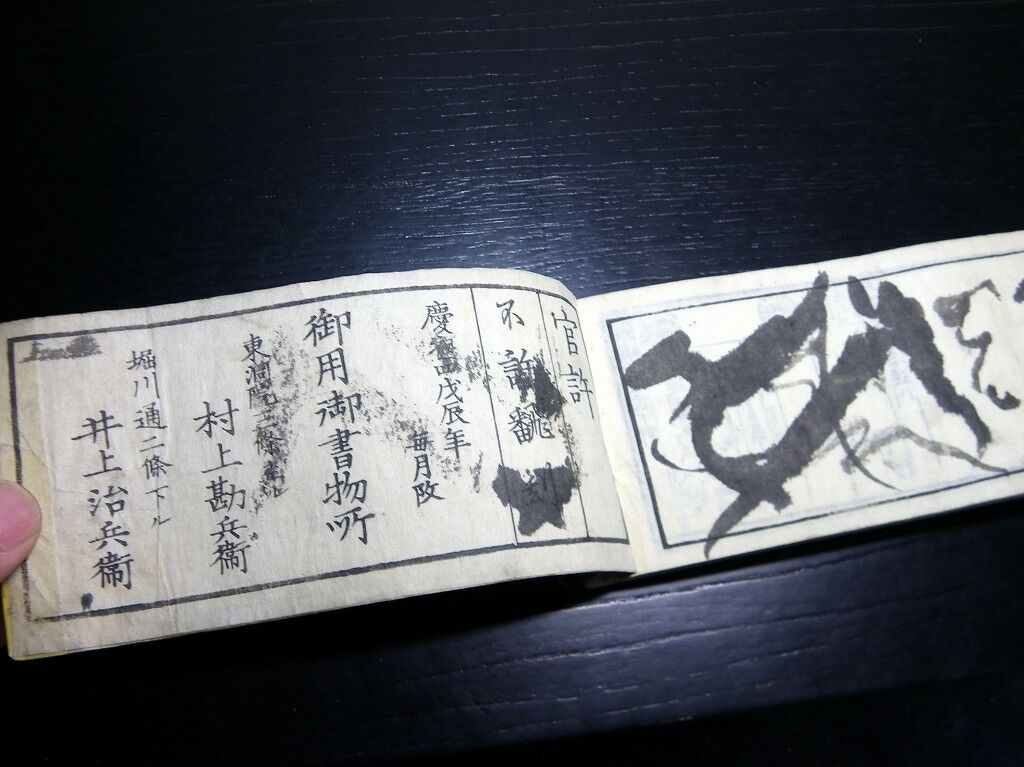 官許
不許翻刻
慶應四戊辰年
毎月改
御用御書物所
東洞院三條上ル
村上勘兵衛
堀川通二條下ル
井上治兵衛